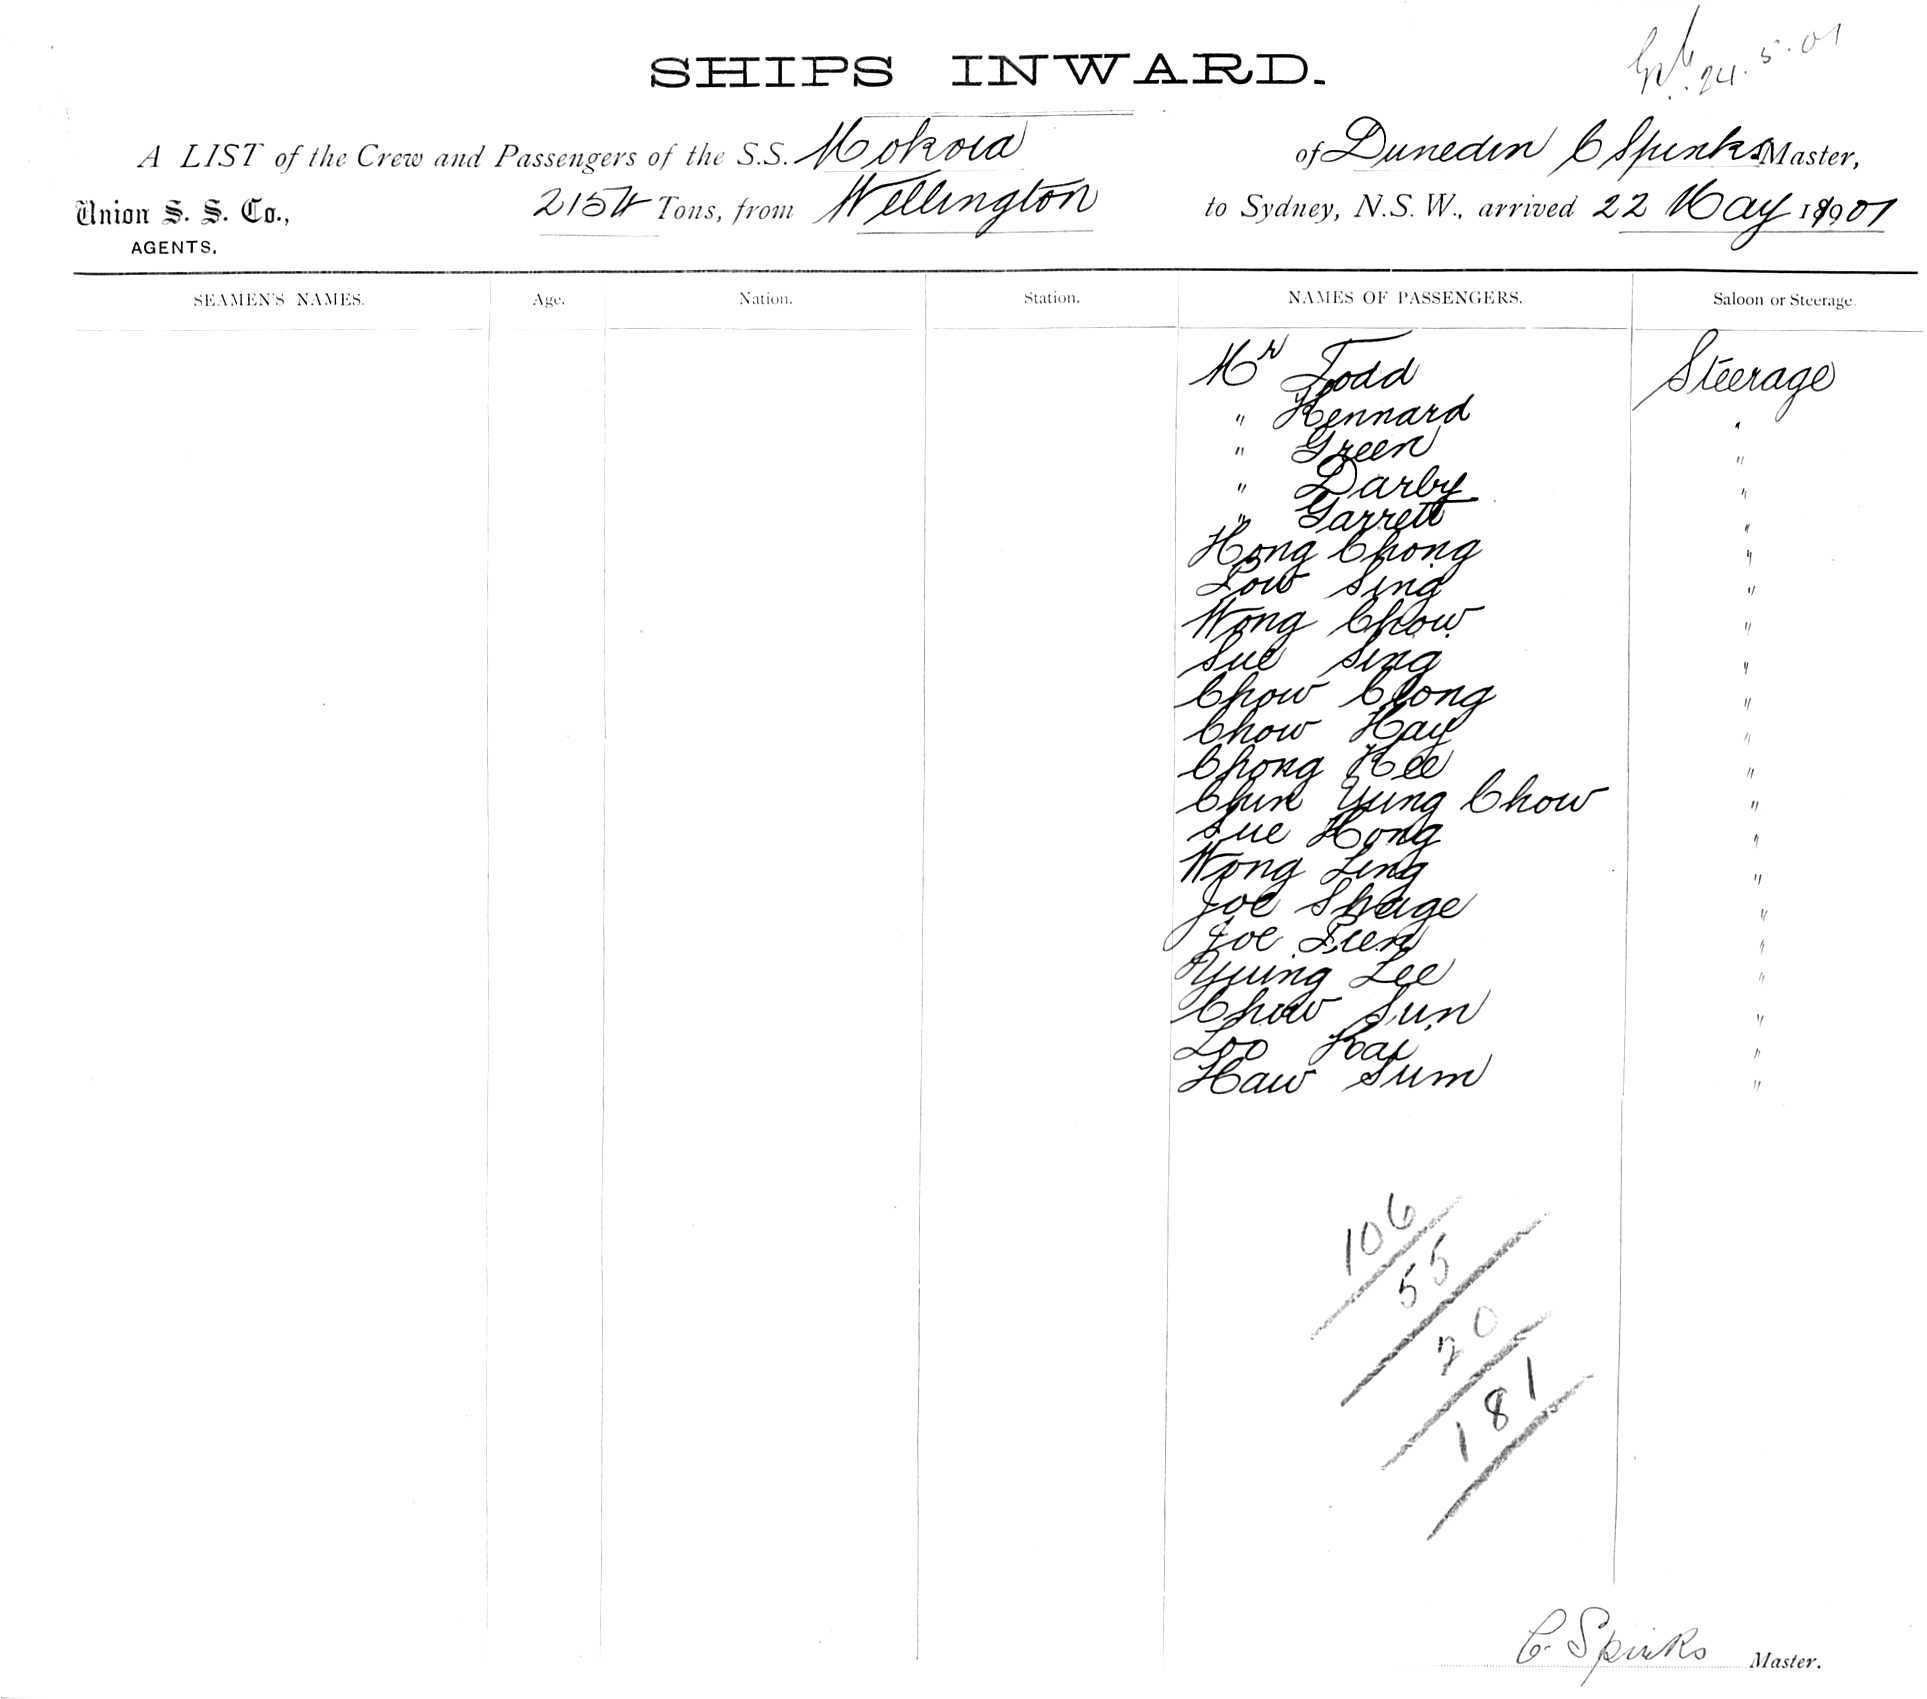 24.5.01
SHIPS INWARD.
A LIST of the Crew and Passengers of the S.S. Mokoia of Dunedin C Spinks Master,
Union S. S. Co., 2154 Tons, from Wellington to Sydney, N.S.W., arrived 22 May 1901
AGENTS.
SEAMEN'S NAMES. Age. Nation. Station. NAMES OF PASSENGERS. Saloon or Steerage.
Mr Todd Steerage
" Kennard "
" Green "
" Darby "
" Garrett "
Hong Chong "
Low Sing "
Wong Chow "
Sue Sing "
Chow Chong "
Chow Hay "
Chong Kee "
Chun Yung Chow "
Sue Hong "
Wong Ling "
Joe Shage "
Joe "
Yuing Lee "
Chow Sun "
Loo Kai "
Haw Sum "
106
55
20
181
C Spinks Master.